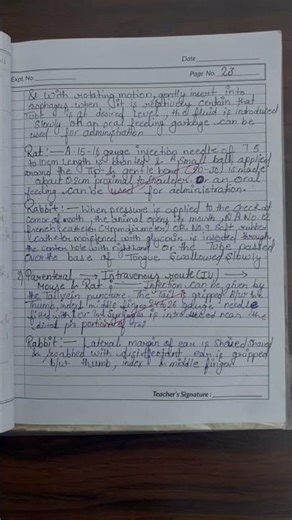 Date
Expt. No.
Page No. 28
& With rotating motion, gently insert into
esophagus when it is relatively certain that
Tube is at desired level, the fluid is introduced
slowly or an oral feeding garbage can be
used for administration
Rat :— A 15-16 gauge injection needle of 7.5
to 10cm length is blunted & a small ball applied
around the Tip & gentle bend (20-30) is made
apart 0.2cm proximal to or an oral
feeding can be used for administration.
Rabbit :— When pressure is applied to the cheek at
corner of mouth, the animal open its mouth, A No. 12
french catheter (4mm diameter) or No. 9 soft rubber
catheter moistened with glycerin is inserted through
the center hole with right hand or the Tube passed
over the base of Tongue swallowed slowly
Parenteral → Intravenous route (IV) →
Mouse & Rat :— Injection can be given by
the Tail vein puncture. The Tail is gripped b/w the
thumb, next middle finger gauge needle
fitted with 1 or 2ml syringe is introduced near the
portion of
Rabbit :— Lateral margin of ear is shaved
& swabbed with disinfectant, ear is gripped
b/w thumb, index & middle finger
Teacher's Signature :